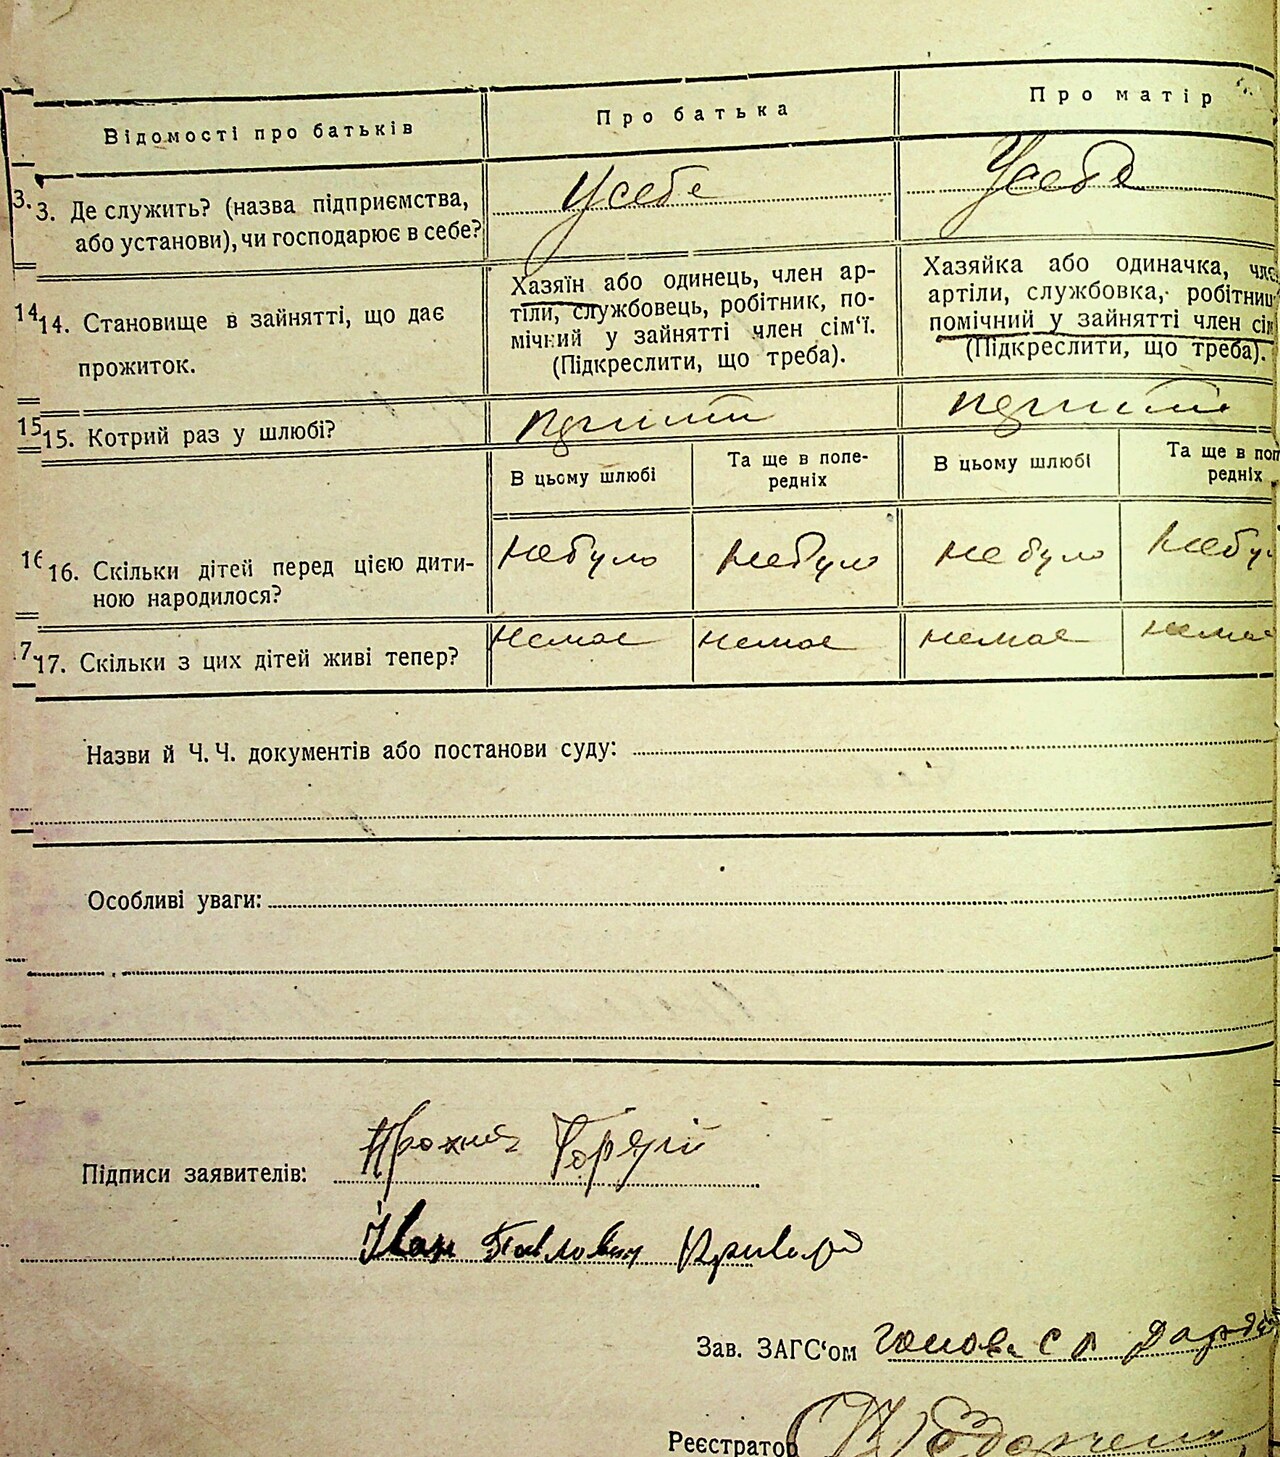 Відомості про батьків
Про батька
Про матір
3. 3. Де служить? (назва підприємства,
або установи), чи господарює в себе?
У себе
У себе
14 14. Становище в зайнятті, що дає
прожиток.
Хазяїн або одинець, член ар-
тіли, службовець, робітник, по-
мічний у зайнятті член сім'ї.
(Підкреслити, що треба).
Хазяйка або одиначка, член
артіли, службовка, робітниц
помічний у зайнятті член сім
(Підкреслити, що треба).
15 15. Котрий раз у шлюбі?
В цьому шлюбі
Та ще в попе-
редніх
В цьому шлюбі
Та ще в поп
редніх
16 16. Скільки дітей перед цією дити-
ною народилося?
небуло
небуло
не було
небу
17. 17. Скільки з цих дітей живі тепер?
немає
немає
немає
немає
Назви й Ч. Ч. документів або постанови суду:
Особливі уваги:
Підписи заявителів:
Іван Павлович
Зав. ЗАГС'ом голова с р
Реєстратор